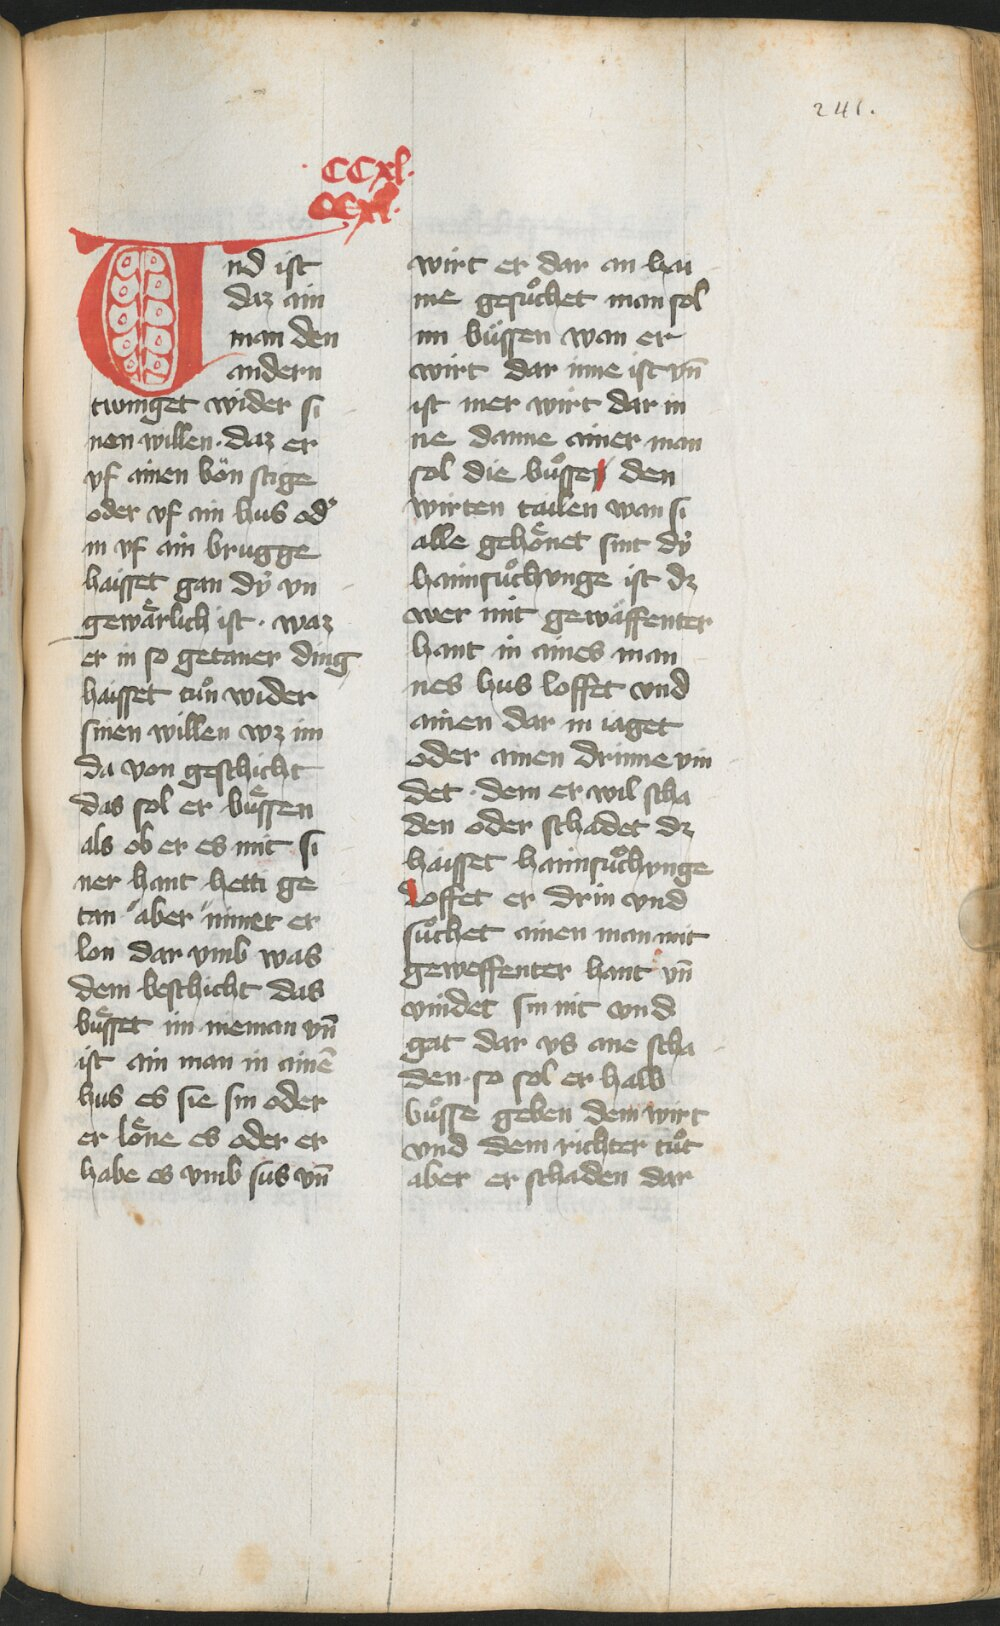 241.
CCxl.
CCxl.
Vnd ist
daz ain
man den
andern
twinget wider si
nen willen. daz er
vf ainen bön stige
oder vf ain hus od᾽
in vf ain brugge
haisset gan dÿ vn
gewaͤrlich ist. waz
er in so getaner ding
haisset tuͦn wider
sinen willen wz im
da von geschicht
das sol er buͤssen
als ob er es mit si
ner hant hetti ge
tan "aber "nimet er
lon dar vmb was
dem beschicht das
buͤsset im nieman vn̄
ist ain man in ainē
hus es sie sin oder
er loͤne es oder er
habe es vmb sus vn̄
wirt er dar an hai
me gesuͦchet man sol
im buͤssen wan er
wirt dar inne ist vn̄
ist mer wirt dar in
ne danne ainer man
sol die buͦsse den
wirten tailen wan si
alle gehoͤnet sint dÿ
haimsuͦchvnge ist dz
wer mit gewaͤffenter
hant in aines man
nes hus loffet vnd
ainen dar in iaget
oder ainen drinne vin
det. dem er wil scha
den oder schadet dz
haisset haimsuͦchvnge
loffet er drin vnd
suͦchet ainen man mit
geweffenter hant vn̄
vindet sin nit vnd
gat dar vs ane scha
den. so sol er halb
buͦsse geben dem wirt
vnd dem richter tuͦt
aber er schaden dar